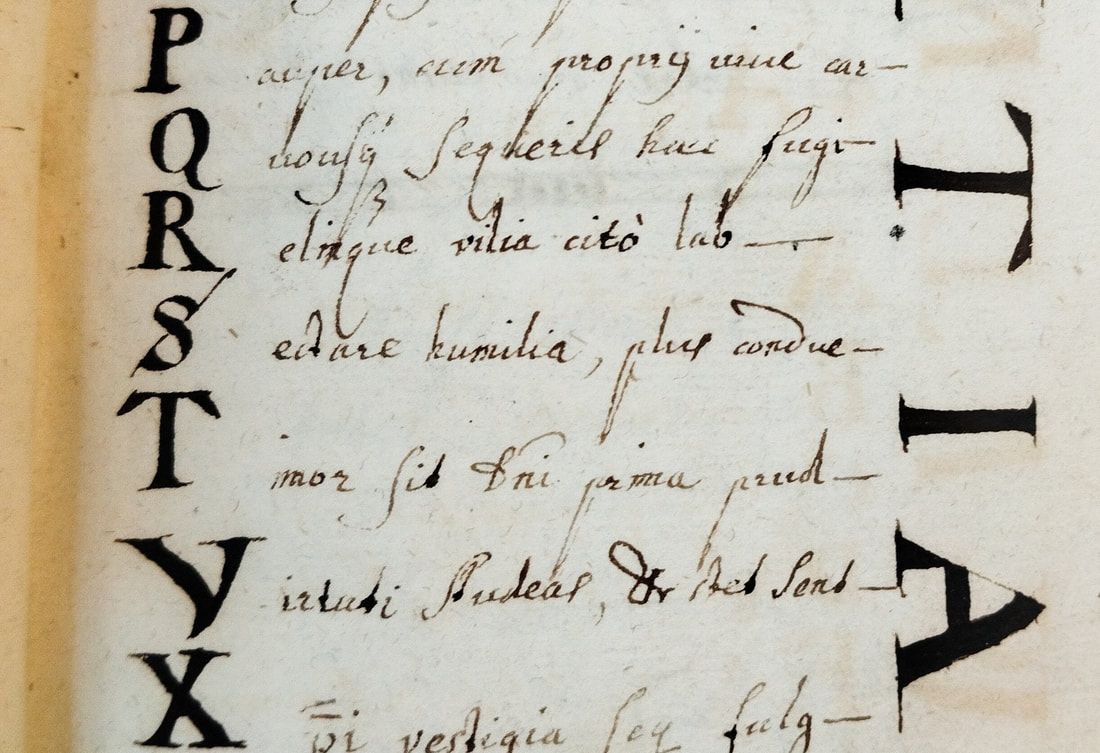 P auper, cum proprij viue car-
Q uousq̃ sequeris hac fugi-
R elinque vilia citò lab-
S ectare humilia, plus condue-
T imor sit dñi prima prud-
V irtuti studeas, & stet sent-
X p̄i vestigia seq fulg-
T
I
A